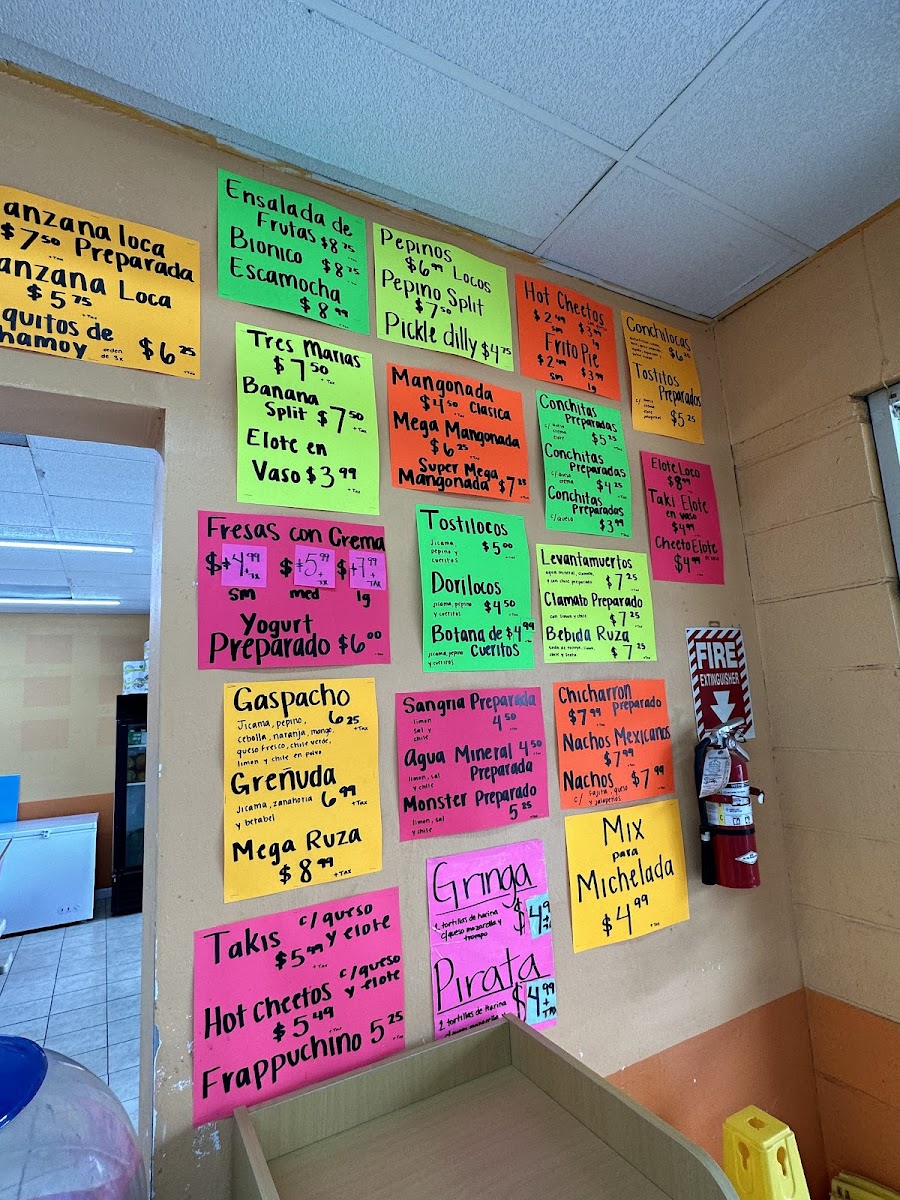 anzana loca
$7.50 Preparada
+Tax
anzana Loca
$5.75
quitos de
hamoy orden de 3x $6.25
Ensalada de
Frutas $8.25
Bionico $8.25
Escamocha
$8.99
Pepinos
$6.99 Locos
Pepino Split
$7.50
Pickle dilly $4.75
Hot Cheetos
$2.99 $3.99
sm lg
Frito Pie
$2.99 $3.99
sm lg
Conchilocas
$6.25
Tostitos
Preparados
$5.25
Tres Marias
$7.50 +Tax
Banana
Split $7.50
+Tax
Elote en
Vaso $3.99
+Tax
Mangonada
$4.50 Clasica
Mega Mangonada
$6.25
Super Mega
Mangonada $7.25
Conchitas
Preparadas
c/queso
crema
elote $5.25
Conchitas
Preparadas
c/queso
crema $4.25
Conchitas
Preparadas
c/queso $3.99
Elote Loco
$8.99
Taki Elote
en vaso
$4.99
Cheeto Elote
$4.99 en vaso
Fresas con Crema
$4.99 +TX $5.99 +TX $7.99 +TAX
sm med lg
Yogurt
Preparado $6.00
Tostilocos
Jicama,
pepino y
cueritos $5.00
Dorilocos
jicama, pepino
y cueritos $4.50
Botana de $4.99
jicama, pepino
y cueritos Cueritos
Levantamuertos
agua mineral, clamato,
y con chile preparado $7.25
Clamato Preparado
con limon y chile $7.25
Bebida Ruza
$7.25
FIRE
EXTINGUISHER
Gaspacho
Jicama, pepino, 6.25
+Tax
cebolla, naranja, mango,
queso fresco, chile verde,
limon y chile en polvo
Greñuda
Jicama, zanahoria 6.99
+Tax
y betabel
Mega Ruza
$8.99 +TAX
Sangria Preparada
limon
sal y
chile 4.50
Agua Mineral 4.50
limon, sal
y chile Preparada
Monster Preparado
limon, sal
y chile 5.25
Chicharron
$7.99 preparado
Nachos Mexicanos
$7.99
Nachos $7.99
c/ fajita, queso
y jalapeños
Mix
para
Michelada
$4.99
+Tax
Takis c/queso
$5.49 y elote
+Tax
Hot Cheetos c/queso
y elote
$5.49 +Tax
Frappuchino 5.25
Gringa
1 tortillas de harina
c/queso mozarella y
trompo $4.9
Pirata
2 tortillas de harina
$4.99
+TAX